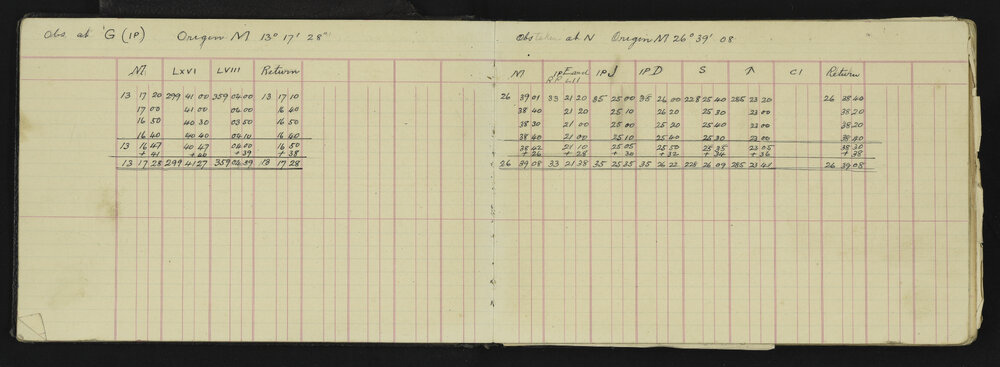 Obs at 'G (IP) Origin M 13° 17' 28"
M LXVI LVIII Return
13 17 20 299 41 00 359 04 00 13 17 10
17 00 41 00 04 00 16 40
16 50 40 30 03 50 16 50
16 40 40 40 04 10 16 40
13 16 47 40 47 04 00 16 50
+ 41 + 40 + 39 + 38
13 17 28 299 41 27 359 04 39 13 17 28
Obs at N Origin M 26° 39' 08
M IP E and IP J IP D S T C1 Return
R.P. L11
26 39 01 33 21 20 35 25 00 35 26 00 228 25 40 285 23 20 26 38 40
38 40 21 20 25 10 26 20 25 30 23 00 38 20
38 30 21 00 25 00 25 30 25 40 23 00 38 20
38 40 21 00 25 10 25 40 25 30 23 00 38 40
38 42 21 10 25 05 25 50 25 35 23 05 38 30
+ 26 + 28 + 30 + 32 + 34 + 36 + 38
26 39 08 33 21 38 35 25 35 35 26 22 228 26 09 285 23 41 26 39 08